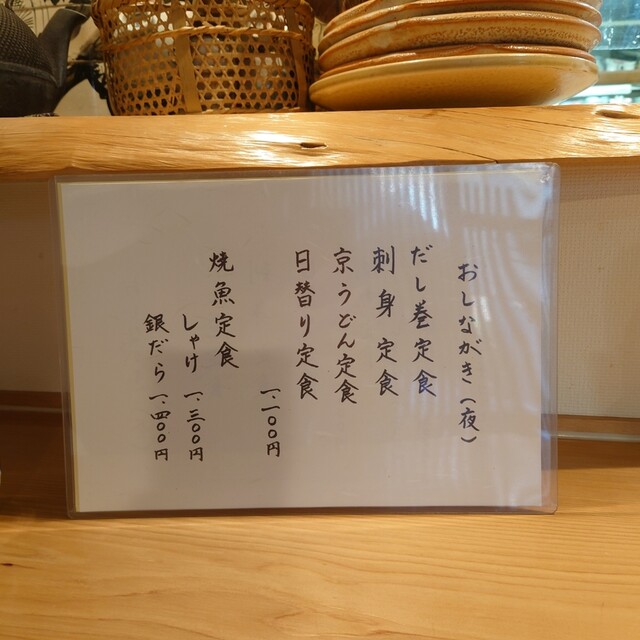 おしながき(夜)
だし巻定食
刺身定食
京うどん定食
日替り定食
一、一〇〇円
焼魚定食
しゃけ 一、三〇〇円
銀だら 一、四〇〇円